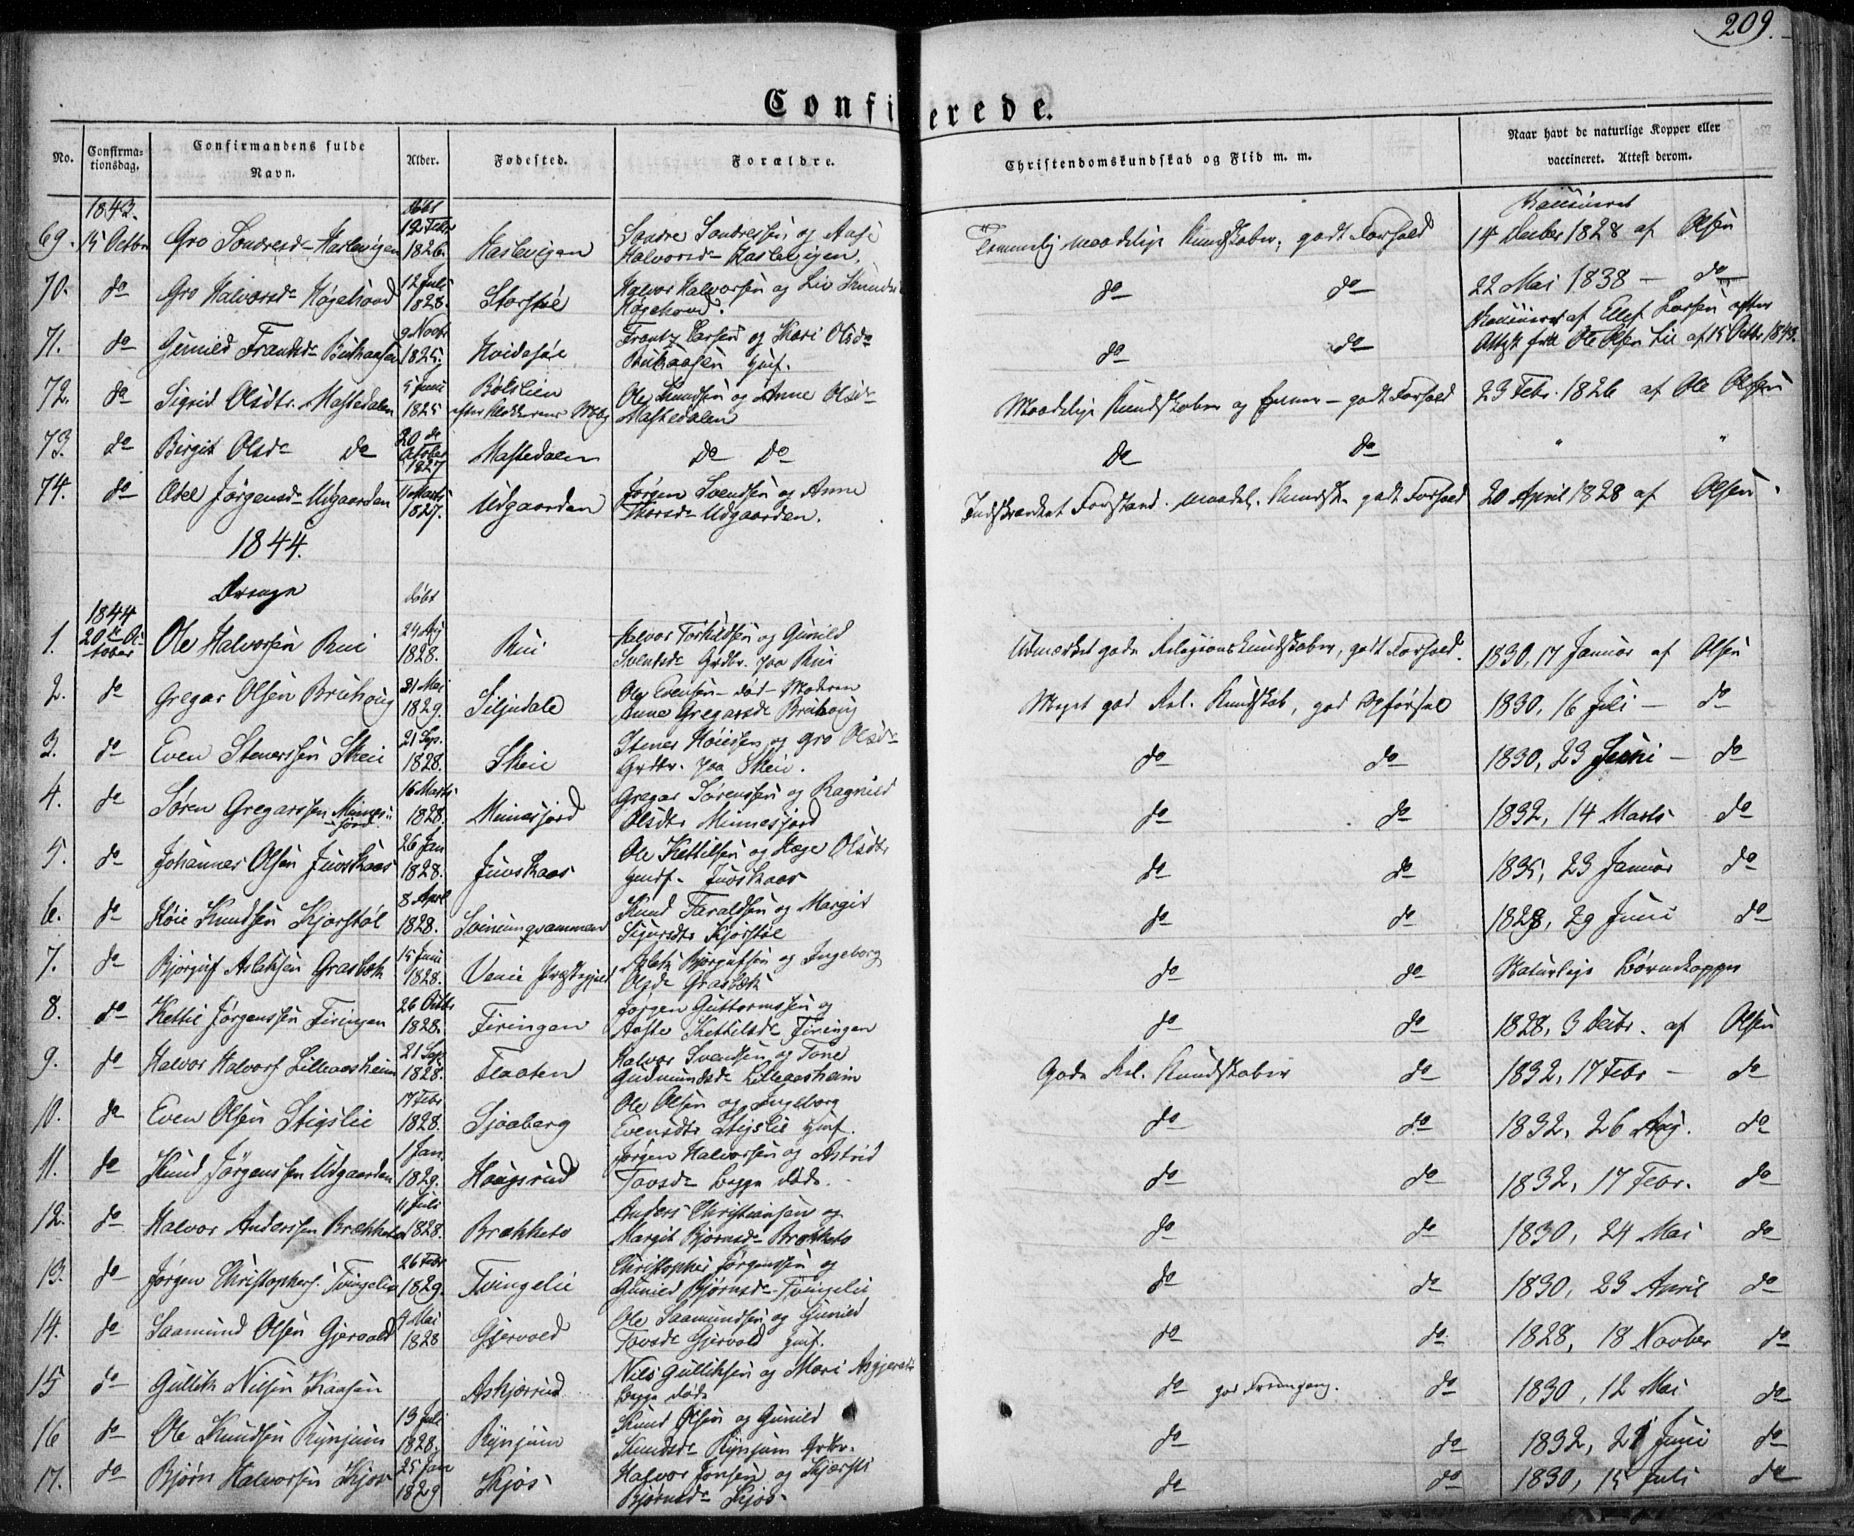 209.
Confirmerede.
No.
Confirma-
tionsdag.
Confirmandens fulde
Navn.
Alder.
Fødested.
Forældre.
Christendomskundskab og Flid m. m.
Naar havt de naturlige Kopper eller
vaccineret. Attest derom.
1843. døbt Vaccineret
69. 15 Octbr Gro Sondresdr Haslevigen 12 Febr 1826. Haslevigen Sondre Sondressen og Aase
Halvorsdr Haslevigen. Temmelig maadelige Kundskaber, godt Forhold 14 Decbr 1828 af Olsen
70. do Gro Halvorsdr Høgehoved 12 Juli 1828. Storstøl Halvor Halvorsen og Liv
Høgehoved. do do 22 Mai 1838 – do
71. do Gunild Frantzdr 9 Novbr 1825. Frantz Larsen og Kari Olsdr
gmf. do do Vaccineret af Ellef Larsen efter
Attest fra Ole Olsen Lie af 15 Octbr 1843.
72. do Sigrid Olsdtr. Mastedalen 5 Juni 1825 Bøkslien
efter Klokkerens Ole Knudsen og Anne Olsdr
Mastedalen Maadelige Kundskaber og Evner – godt Forhold 23 Febr. 1826 af Ole Olsen
73. do Birgit Olsdr do 20de October 1827 Mastedalen do do do do " "
74. do Jørgensdr Udgaarden 11 Marts 1827. Udgaarden Jørgen Svendsen og Anne
Thorsdr Udgaarden. Indskrænket Forstand. maadel. Kundsk. godt Forhold 20 April 1828 af Olsen.
1844.
Drenge døbt
1844
1. 20de October Ole Halvorsen Rui 24 Aug 1828. Rui Halvor Torkildsen og Gunild
Svendsdr Grdbr. paa Rui Udmærket gode Religionskundskaber, godt Forhold. 1830, 17 Januar af Olsen
2. do Gregar Olsen Bruhoug 31 Mai 1829. Siljudale Ole Evensen – død – Moderen
Anne Gregarsdr Bruhoug Meget god Rel. Kundskab, god Opførsel 1830, 16 Juli – do
3. do Even Stenersen Skeie 21 Sep. 1828. Skeie Stener Høiesen og Gro Olsdr
Grdbr. paa Skeie. do do 1830, 23 Juni – do
4. do Søren Gregarssen Minnesjord 16 Marts 1828. Minnesjord Gregar Sørenssen og Ragnild
Olsdtr Minnesjord do do 1832, 14 Marts do
5. do Johannes Olsen Juvskaas 26 Jan 1828. Juvskaas Ole Kettilsen og Hæge Olsdtr
gmf. Juvskaas do do 1835, 23 Januar do
6. do Høie Knudsen Kjorstøl 8 April 1828. Knud Taraldsen og Margit
Sigursdtr Kjorstøl do do 1828, 29 Juni do
7. do Bjørguf Aslaksen Grasbek 15 Juni 1828. Vinie Præstegjeld Aslak Bjørgufsen og Ingeborg
Olsdr Grasbek do do Naturlige Børnekopper
8. do Kettil Jørgenssen Firingen 26 Octbr 1828. Firingen Jørgen Guttormssen og
Aaste Kettilsdr Firingen do do 1828, 3 Decbr. af Olsen
9. do Halvor Halvors Lilleaasheim 21 Sep. 1828. Flaaten Halvor Svendsen og Tone
Gudmundsdr Lilleaasheim Gode Rel. Kundskaber do 1832, 17 Febr – do
10. do Even Olsen Stigslie 17 Febr 1828. Sjaaberg Ole Olsen og Ingeborg
Evensdtr Stigslie gmf. do do 1832, 26 Aug. do
11. do Knud Jørgenssen Udgaarden 1 Jan 1829. Hougsrud Jørgen Halvorsen og Astrid
Tovsdr begge døde. do do 1832, 17 Febr. do
12. do Halvor Anderssen Brækketo 11 Juli 1828. Brækketo Anders Christiansen og
Margit Bjørnsdr Brækketo do do 1830, 24 Mai do
13. do Jørgen Christophers. Tvingelie 26 Febr 1829. Tvingelie Christopher Jørgenssen og
Gunild Bjørnsdr Tvingelie do do 1830, 23 April do
14. do Saamund Olsen Gjervold 9 Mai 1828 Gjervold Ole Saamundsen og Gunild
Tovsdr Gjervold gmf. do do 1828, 18 Novber do
15 do Gullik Nilsen Kaasen Askjørud Nils Gulliksen og Mari
begge døde do god Fremgang. do 1830, 12 Mai do
16 do Ole Knudsen Rynjum 13 Juli 1828. Rynjum Knud Olsen og Gunild
Knudsdr Rynjum Grdbr. do do 1832, 21 Juni do
17. do Bjørn Halvorsen Kjos 25 Jan 1829 Kjos Halvor Jonsen og Kjersti
Bjørnsdr Kjos. do do 1830, 15 Juli do